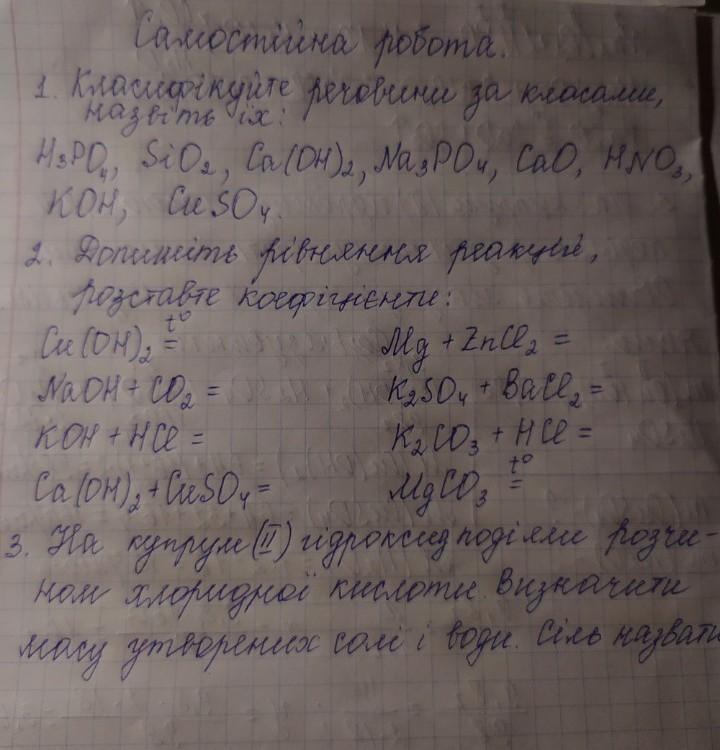 Самостійна робота.
1. Класифікуйте речовини за класами,
назвіть їх:
H₃PO₄, SiO₂, Ca(OH)₂, Na₃PO₄, CaO, HNO₃,
KOH, CuSO₄.
2. Допишіть рівняння реакцій,
розставте коефіцієнти:
Cu(OH)₂ t°= Mg + ZnCl₂ =
NaOH + CO₂ = K₂SO₄ + BaCl₂ =
KOH + HCl = K₂CO₃ + HCl =
Ca(OH)₂ + CuSO₄ = MgCO₃ t°=
3. На купрум (II) гідроксид подіяли розчи-
ном хлоридної кислоти. Визначити
масу утворених солі і води. Сіль назвати